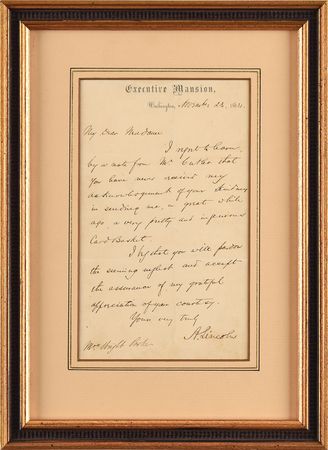 Executive Mansion,
Washington, 186
My Dear Madame
I regret to learn,
by a note from Mr that
you have never received my
acknowledgment of your kindness
in sending me, a great while
ago, a very pretty and ingenious
Card Basket.
I beg that you will pardon
the seeming neglect and accept
the assurance of my grateful
appreciation of your courtesy.
Yours very truly
A. Lincoln